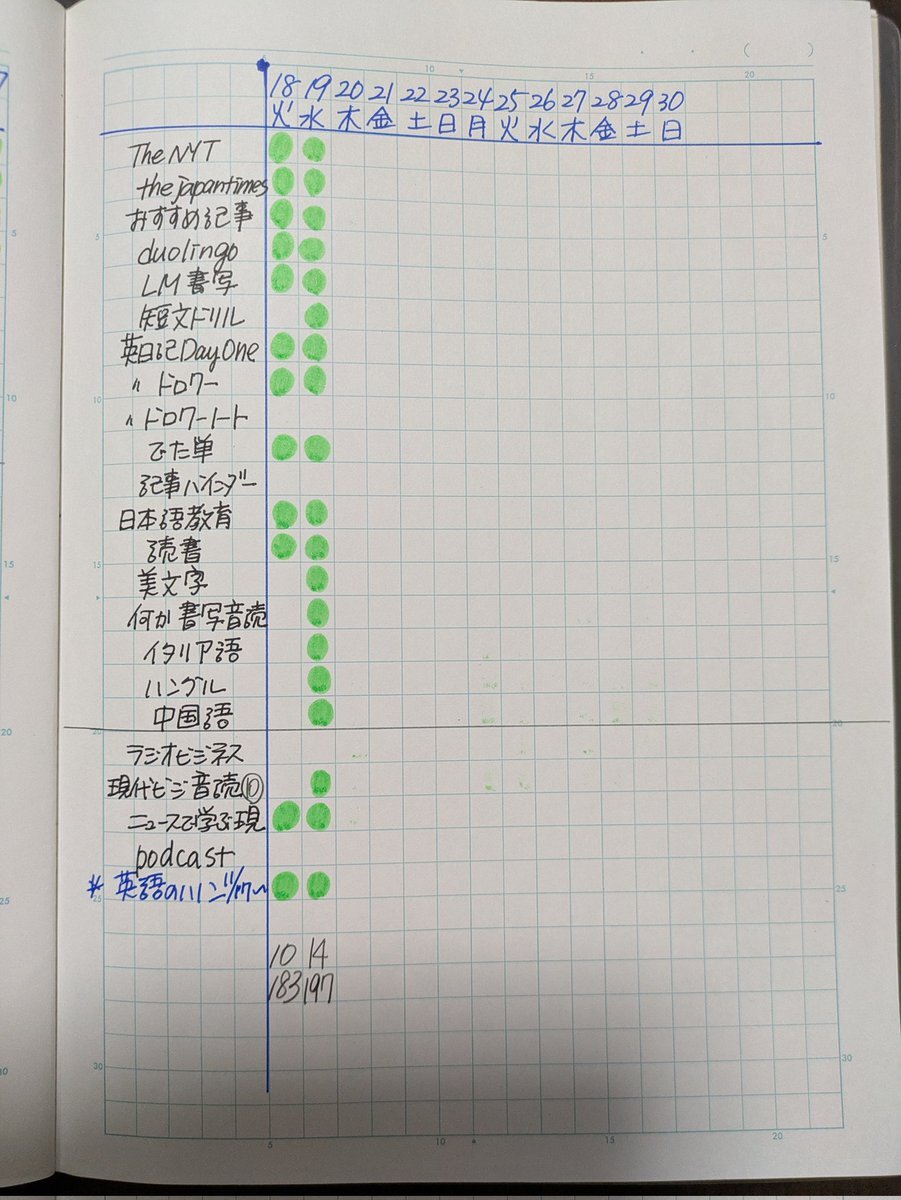 ( )
5 10 15 20
18 19 20 21 22 23 24 25 26 27 28 29 30
火 水 木 金 土 日 月 火 水 木 金 土 日
The NYT
the japantimes
おすすめ記事
5 5
duolingo
LM書写
短文ドリル
英日記 Day One
〃 ドロワー
10 10
〃ドロワーノート
でた単
記事バインダー
日本語教育
読書
15 15
美文字
何か書写音読
イタリア語
ハングル
中国語
20 20
ラジオビジネス
現代ビジ音読⑩
ニュースで学ぶ現
podcast
* 英語のハノン
25 25
10 14
183 197
30 30
5 10 15 20